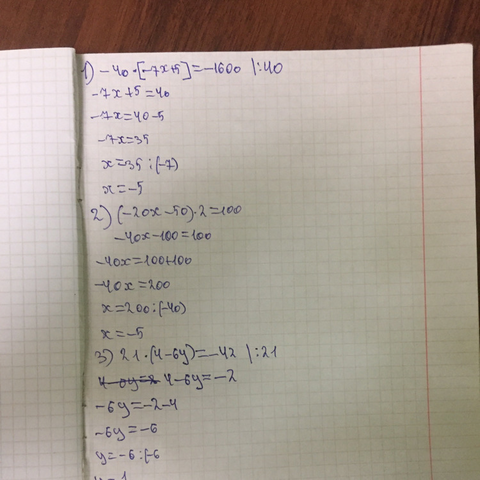 1) -40·[-7x+5]=-1600 |:40
-7x+5=40
-7x=40-5
-7x=35
x=35:(-7)
x=-5
2) (-20x-50)·2=100
-40x-100=100
-40x=100+100
-40x=200
x=200:(-40)
x=-5
3) 21·(4-6y)=-42 |:21
4-6y=-2
-6y=-2-4
-6y=-6
y=-6:(-6
y=1